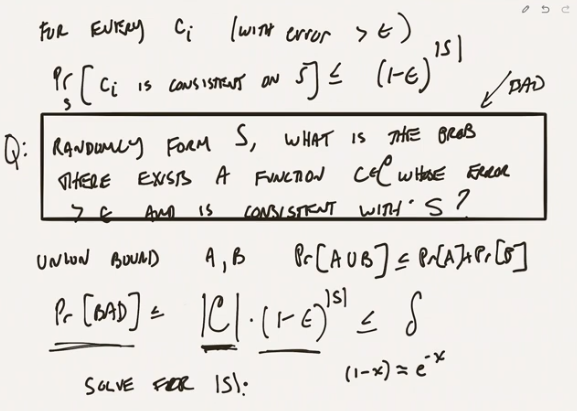 FOR EVERY Ci (WITH error > ε)
Pr_S [Ci IS CONSISTENT ON S] ≤ (1-ε)^|S|
BAD
Q: RANDOMLY FORM S, WHAT IS THE PROB
THERE EXISTS A FUNCTION C∈𝒞 WHOSE ERROR
> ε AND IS CONSISTENT WITH S?
UNION BOUND A, B Pr[A∪B] ≤ Pr[A]+Pr[B]
Pr [BAD] ≤ |𝒞| · (1-ε)^|S| ≤ δ
(1-x) ≈ e^-x
SOLVE FOR |S|: